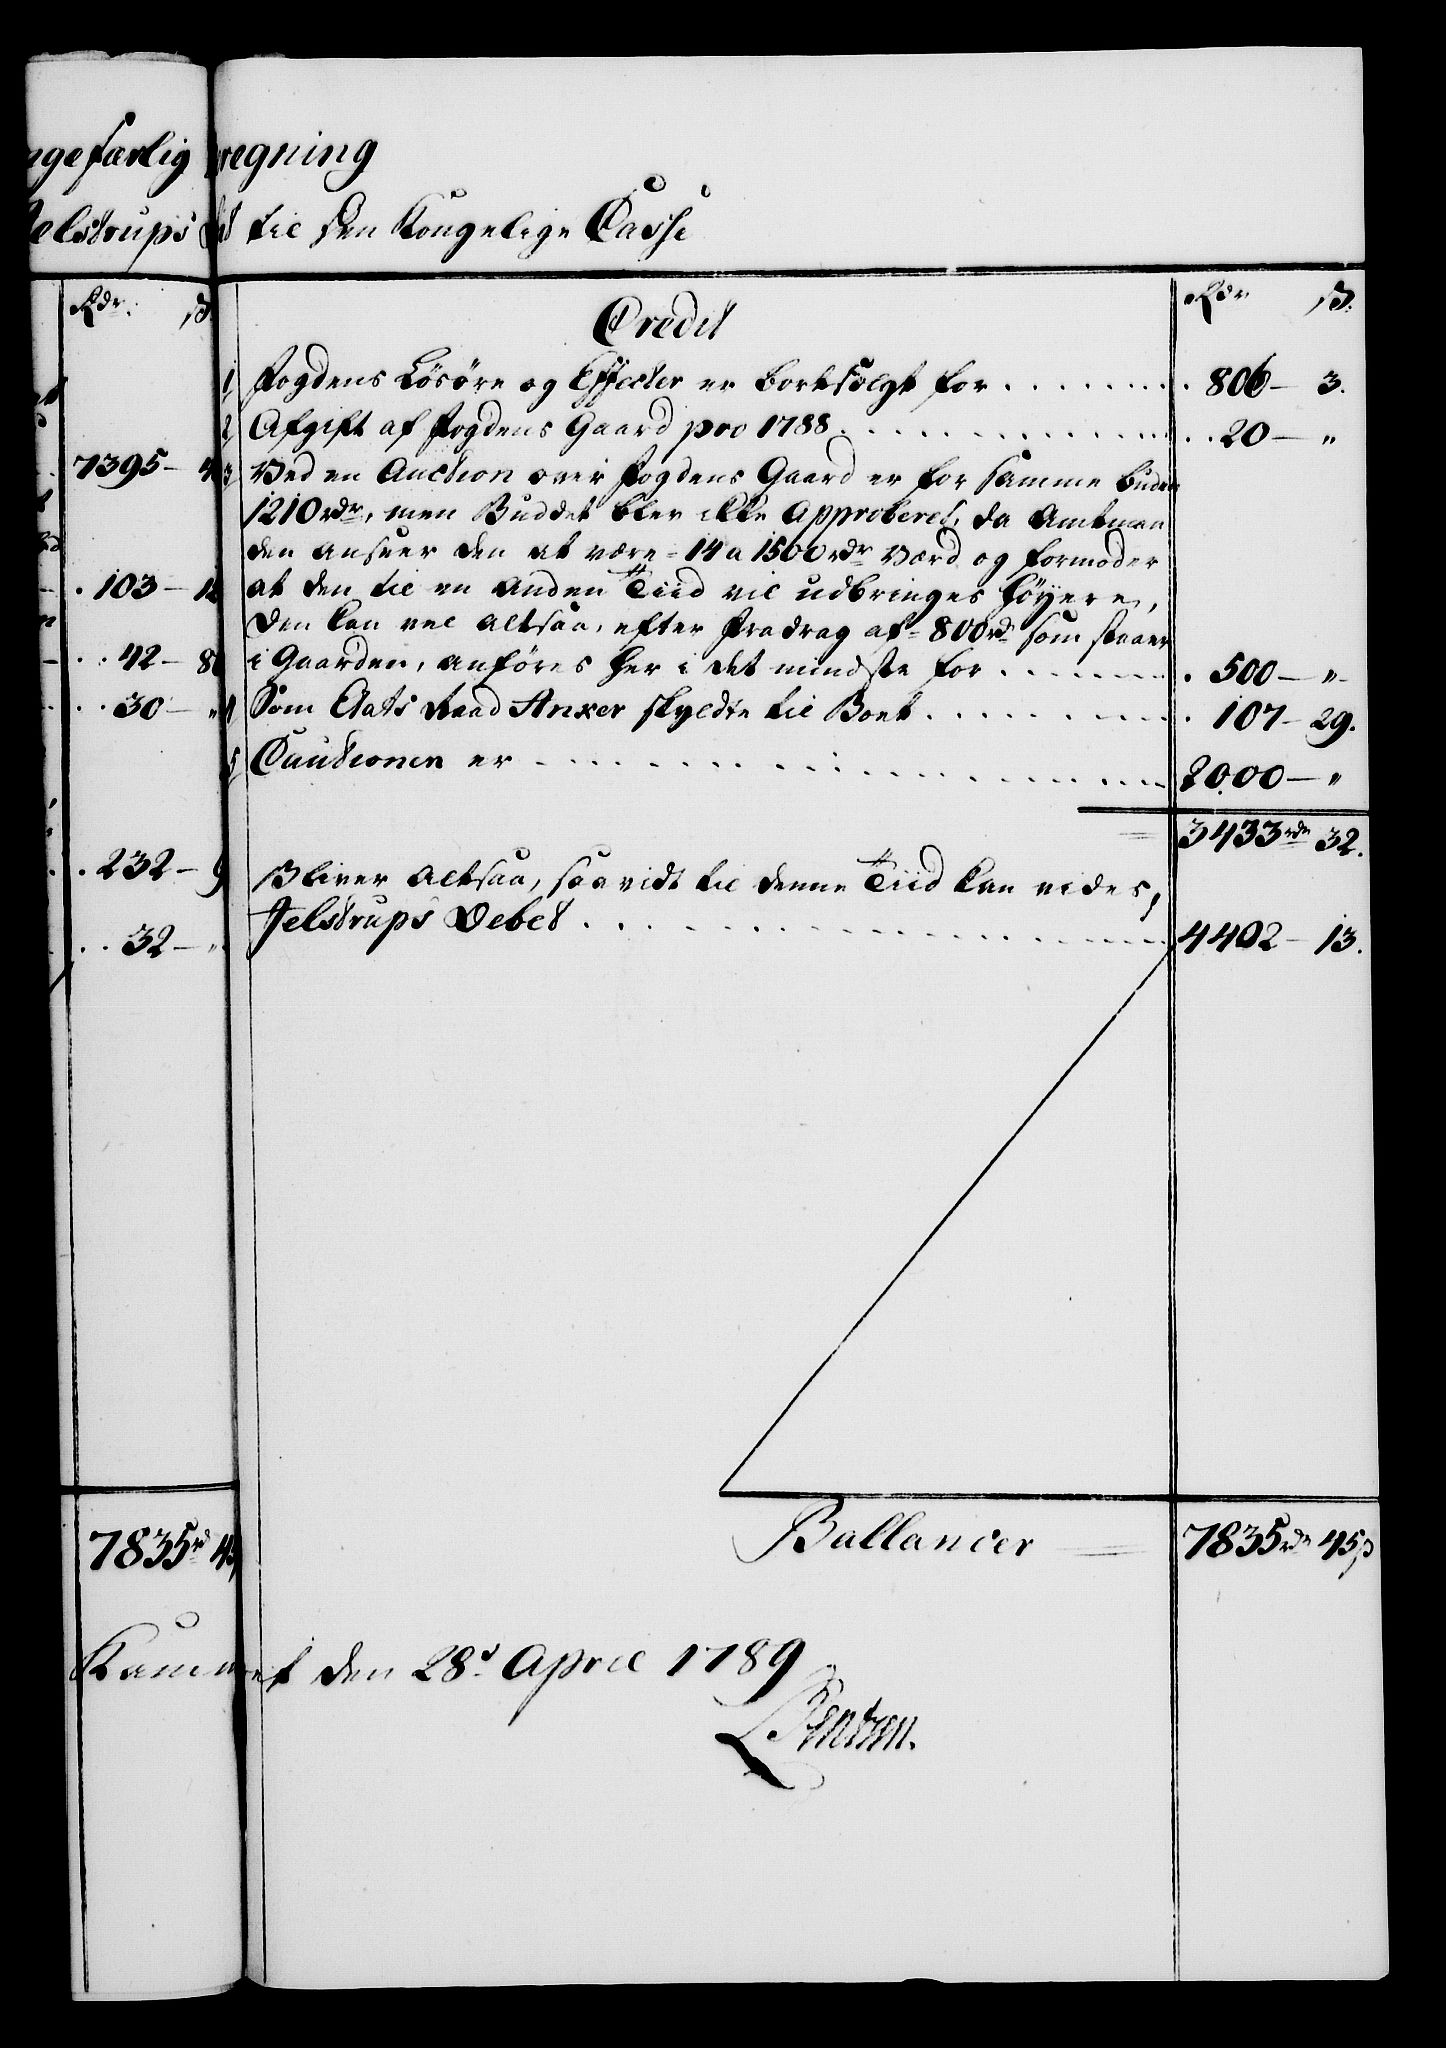 ngefærlig
regning
Jelstrups
til den Kongelige Casse
Rdr. ß.
Credit
Rdr ß.
1 Fogdens Lösöre og Effecter er bortsolgt for . . . . . . . . 806 — 3.
2 Afgift af Fogdens Gaard pro 1788 . . . . . . . . . . . . . 20 — "
7395 — 4
3 Ved en Auction over Fogdens Gaard er for samme buden
1210 rdr, men Buddet blev ikke Approberet, da Amtman
den anseer den at være - 14 a 1500 rdr værd og formoder
. 103 — 12
at den til en anden Tiid vil udbringes höyere,
den kan vel altsaa, efter Fradrag af - 800 rdr som staaer
. . 42 — 8
i Gaarden, anföres her i det mindste for . . . . . . . . 500 — "
. . 30 — "
4 Som Etats Raad Anker skyldte til Boet . . . . . . . . . 107 — 29.
5 Cautionen er . . . . . . . . . . . . . . . . . 2000 — "
3433 rdr 32.
. 232 — 9
Bliver altsaa, saavidt til denne Tiid kan vides,
Jelstrups Debet . . . . . . . . . . . . . . . . 4402 — 13.
. . 32 — "
Ballancer 7835 rdr 45 ß
7835 rd 45
Kammeret den 28d April 1789